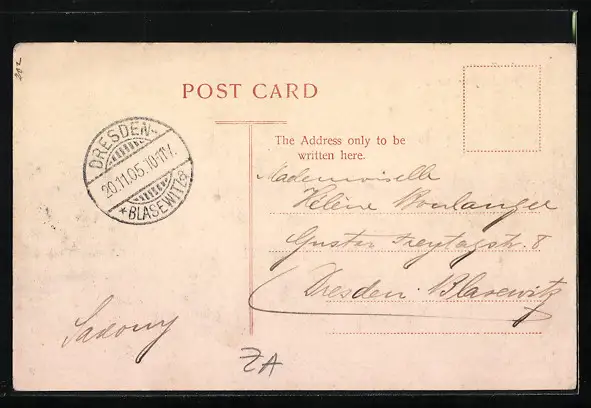 202
POST CARD
DRESDEN-
20.11.05.10-11V.
*BLASEWITZ*
The Address only to be
written here.
Mademoiselle
Hélène Boulanger
Gustav Freytagstr. 8
Dresden-Blasewitz
Saxony
ZA